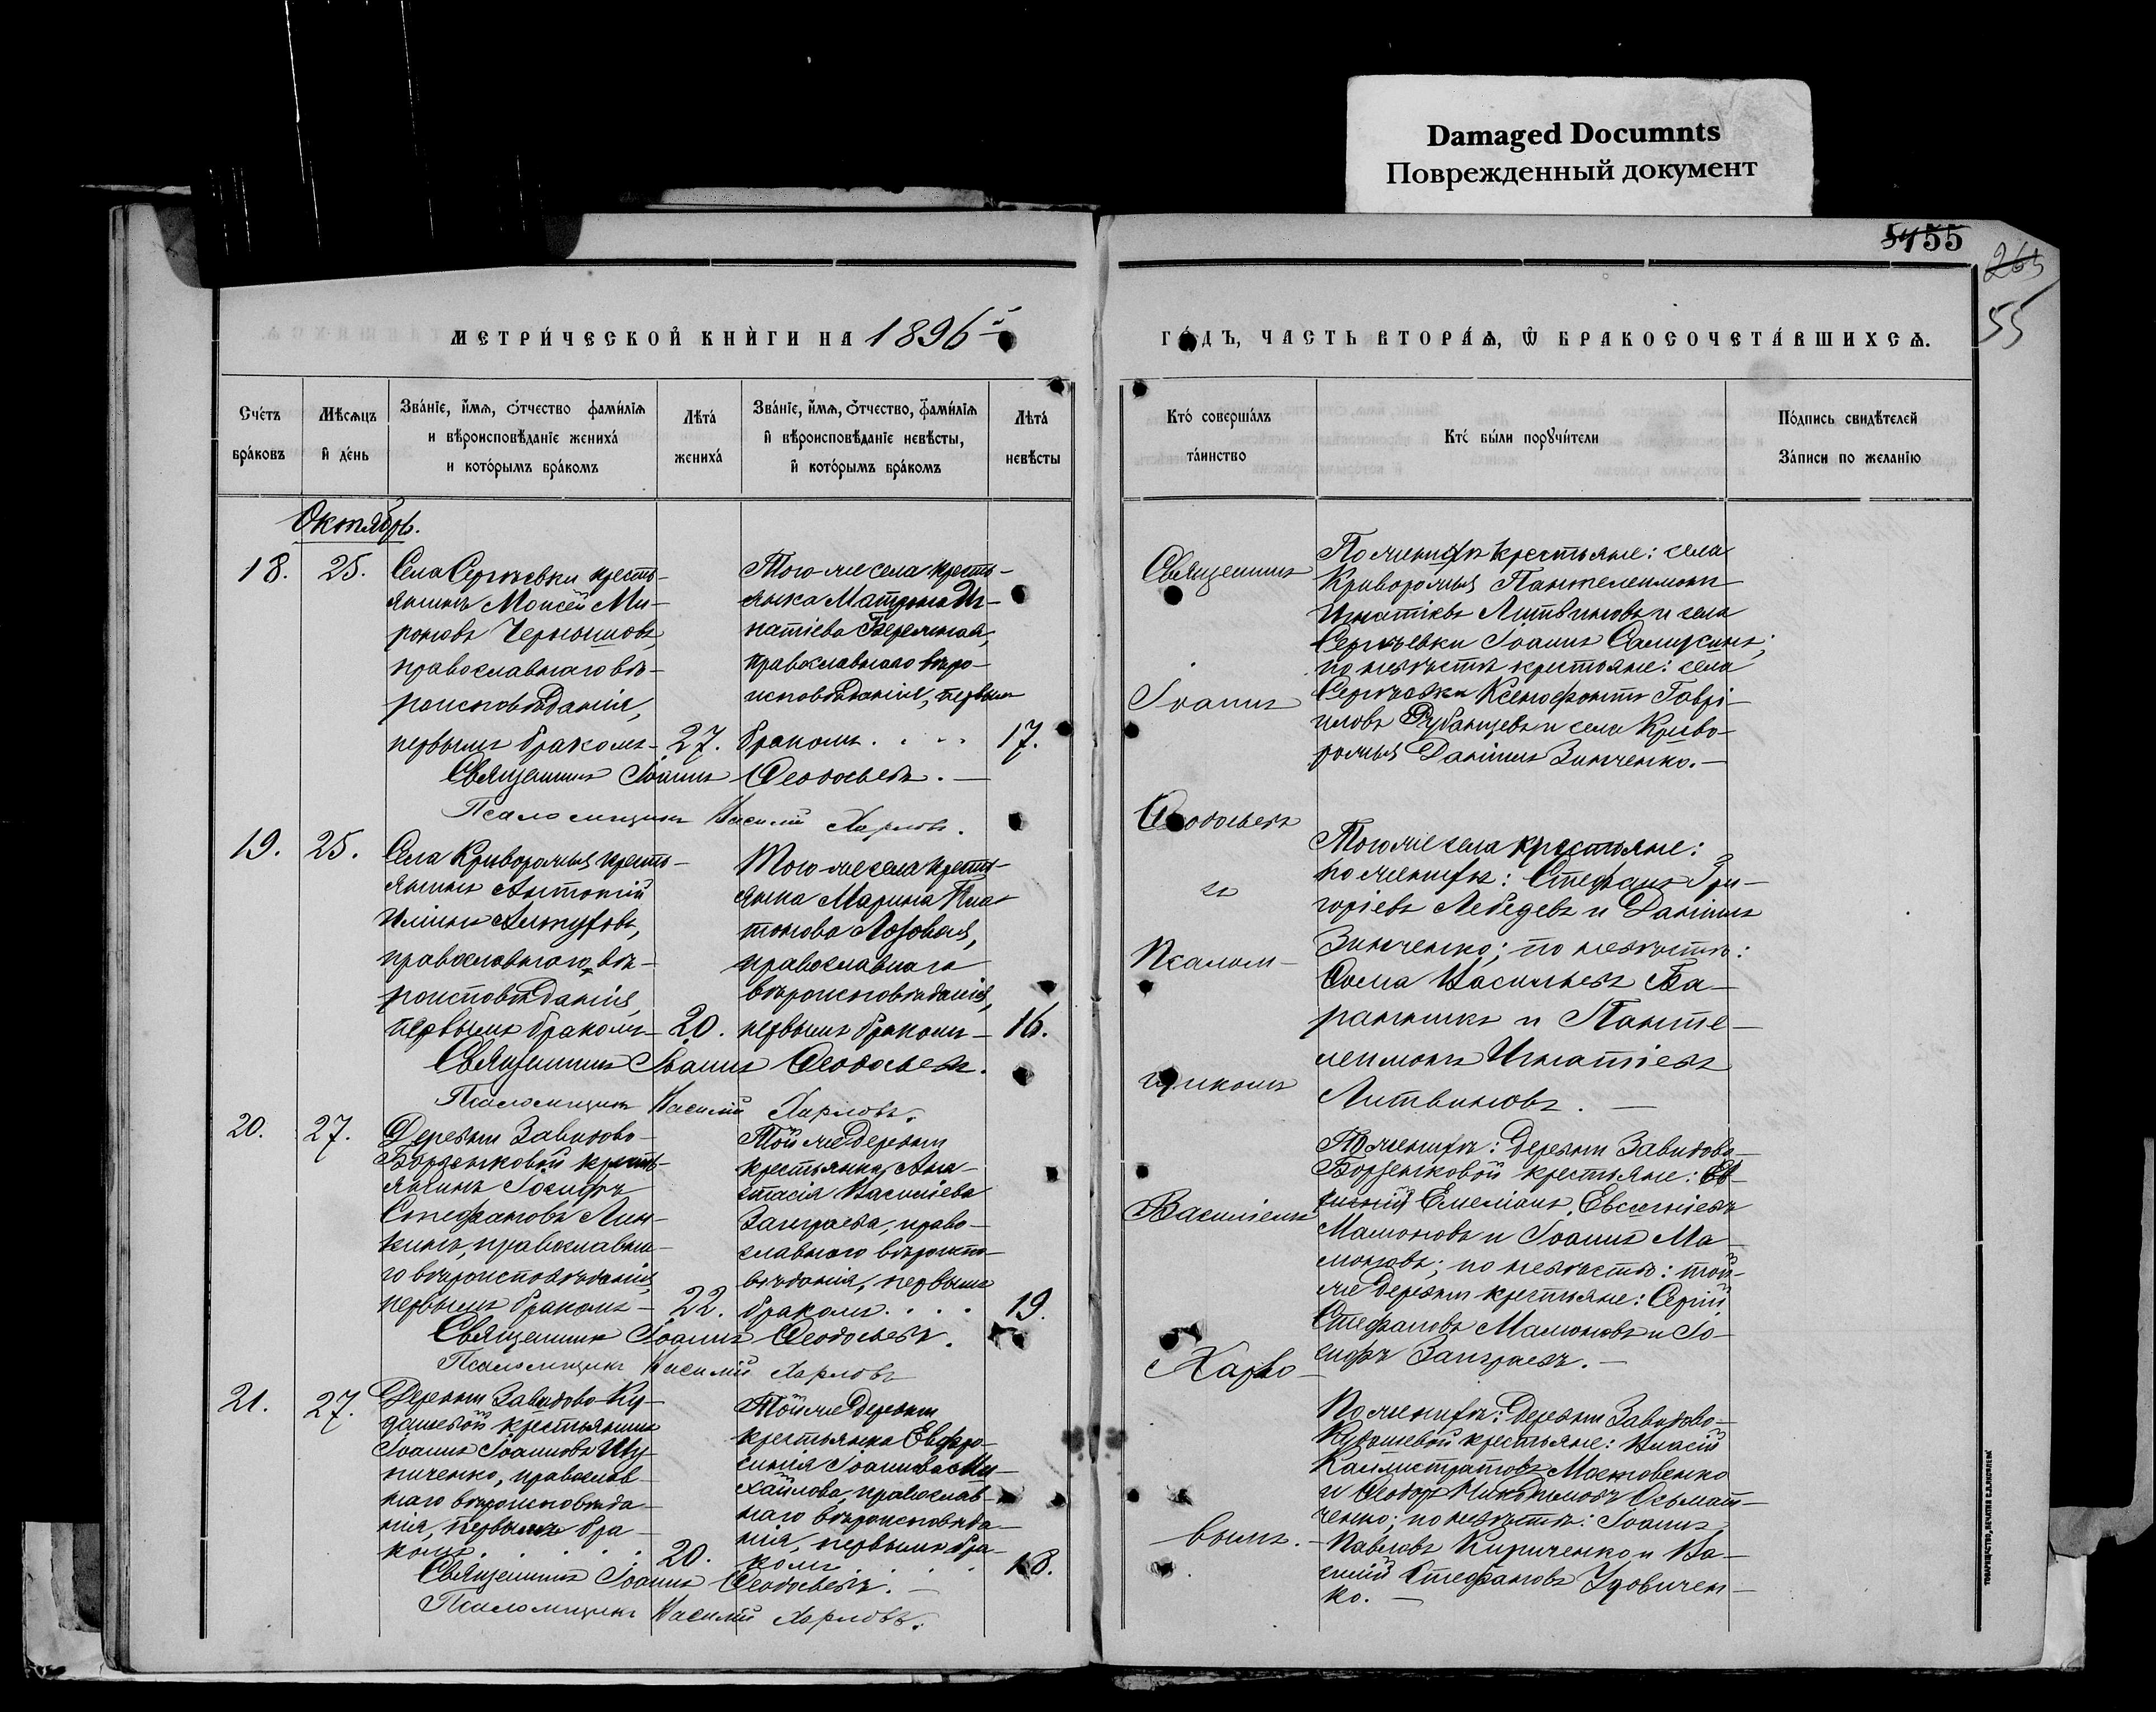 Damaged Documnts
Поврежденный документ
54 55
265
55
МЕТРИ́ЧЕСКОЙ КНИ́ГИ НА 1896й
ГО́ДЪ, ЧАСТЬ ВТОРА́Ѧ, Ѽ БРАКОСОЧЕТА́ВШИХСѦ.
Сче́тъ бра́ковъ
Мѣ́сѧцъ и҆ де́нь
Зва́нїе, и҆́мѧ, ѻ҆́тчество фами́лїѧ и вѣроисповѣ́данїе жениха́ и кото́рымъ бра́комъ
Лѣта̀ жениха́
Зва́нїе, и҆́мѧ, ѻ҆́тчество, фами́лїѧ и҆ вѣроисповѣ́данїе невѣ́сты, и҆ кото́рымъ бра́комъ
Лѣта̀ невѣ́сты
Кто́ соверша́лъ та́инство
Кто́ бы́ли порꙋчи́тели
По́дпись свидѣ́телей За́писи по жела́нїю
Октябрь.
18. 25.
Села Сергѣевки кресть-
янинъ Моисей Ми-
роновъ Чернышовъ,
православнаго вѣ-
роисповѣданія,
первымъ бракомъ - 27.
Того же села кресть-
янка Матрона Иг-
натіева Бережная,
православнаго вѣро-
исповѣданія, первымъ
бракомъ. . . . 17.
Священникъ Іоаннъ Ѳеодосьевъ. -
Псаломщикъ Василій Харловъ.
19. 25.
Села Криворожья кресть-
янинъ Антоній
Иліинъ
православнаго вѣ-
роисповѣданія,
первымъ бракомъ - 20.
Того же села кресть-
янка Марина Пла-
тонова Лозовая,
православнаго
вѣроисповѣданія,
первымъ бракомъ - 16.
Священникъ Іоаннъ Ѳеодосьевъ.
Псаломщикъ Василій Харловъ.
20. 27.
Деревни Завидово-
Борзенковой кресть-
янинъ Іосифъ
Стефановъ
православна-
го вѣроисповѣданія,
первымъ бракомъ - 22.
Той же деревни
крестьянка Ана-
стасія Василіева
Заиграева, право-
славнаго вѣроиспо-
вѣданія, первымъ
бракомъ. . . . 19.
Священникъ Іоаннъ Ѳеодосьевъ.
Псаломщикъ Василій Харловъ
21. 27.
Деревни Завидово-Ку-
дашевой крестьянинъ
Іоаннъ Іоанновъ
православ-
наго вѣроисповѣда-
нія, первымъ бра-
комъ. . . . . . 20.
Той же деревни
крестьянка Евфро-
синія Іоаннова Ми-
хайлова, православ-
наго вѣроисповѣда-
нія, первымъ бра-
комъ. . . . . 18.
Священникъ Іоаннъ Ѳеодосьевъ. -
Псаломщикъ Василій Харловъ.
Священникъ
Іоаннъ
Ѳеодосьевъ
съ
Псалом-
щикомъ
Василіемъ
Харло-
вымъ.
По женихѣ крестьяне: села
Криворожья Пантелеимонъ
Игнатіевъ Литвиновъ и села
Сергѣевки Іоаннъ
по невѣстѣ крестьяне: села
Сергѣевки Ксенофонтъ Гаврі-
иловъ Рубанцевъ и села Криво-
рожья Даніилъ Зинченко. -
Того же села крестьяне:
по женихѣ: Стефанъ Гри-
горіевъ Лебедевъ и Даніилъ
Зинченко; по невѣстѣ:
Ѳома Васильевъ Ба-
ранникъ и Панте-
леимонъ Игнатіевъ
Литвиновъ. -
По женихѣ: деревни Завидово-
Борзенковой крестьяне:
Емеліанъ Евсигніевъ
Мамоновъ и Іоаннъ Ма-
моновъ; по невѣстѣ: той
же деревни крестьяне: Сергій
Стефановъ Мамоновъ и Іо-
сифъ Заиграевъ. -
По женихѣ: деревни Завидово-
Кудашевой крестьяне: Власій
Каллистратовъ Маховенко
и Ѳеодоръ Никодимовъ
по невѣстѣ: Іоаннъ
Павловъ Кириченко и Ва-
силій Стефановъ Удовичен-
ко. -